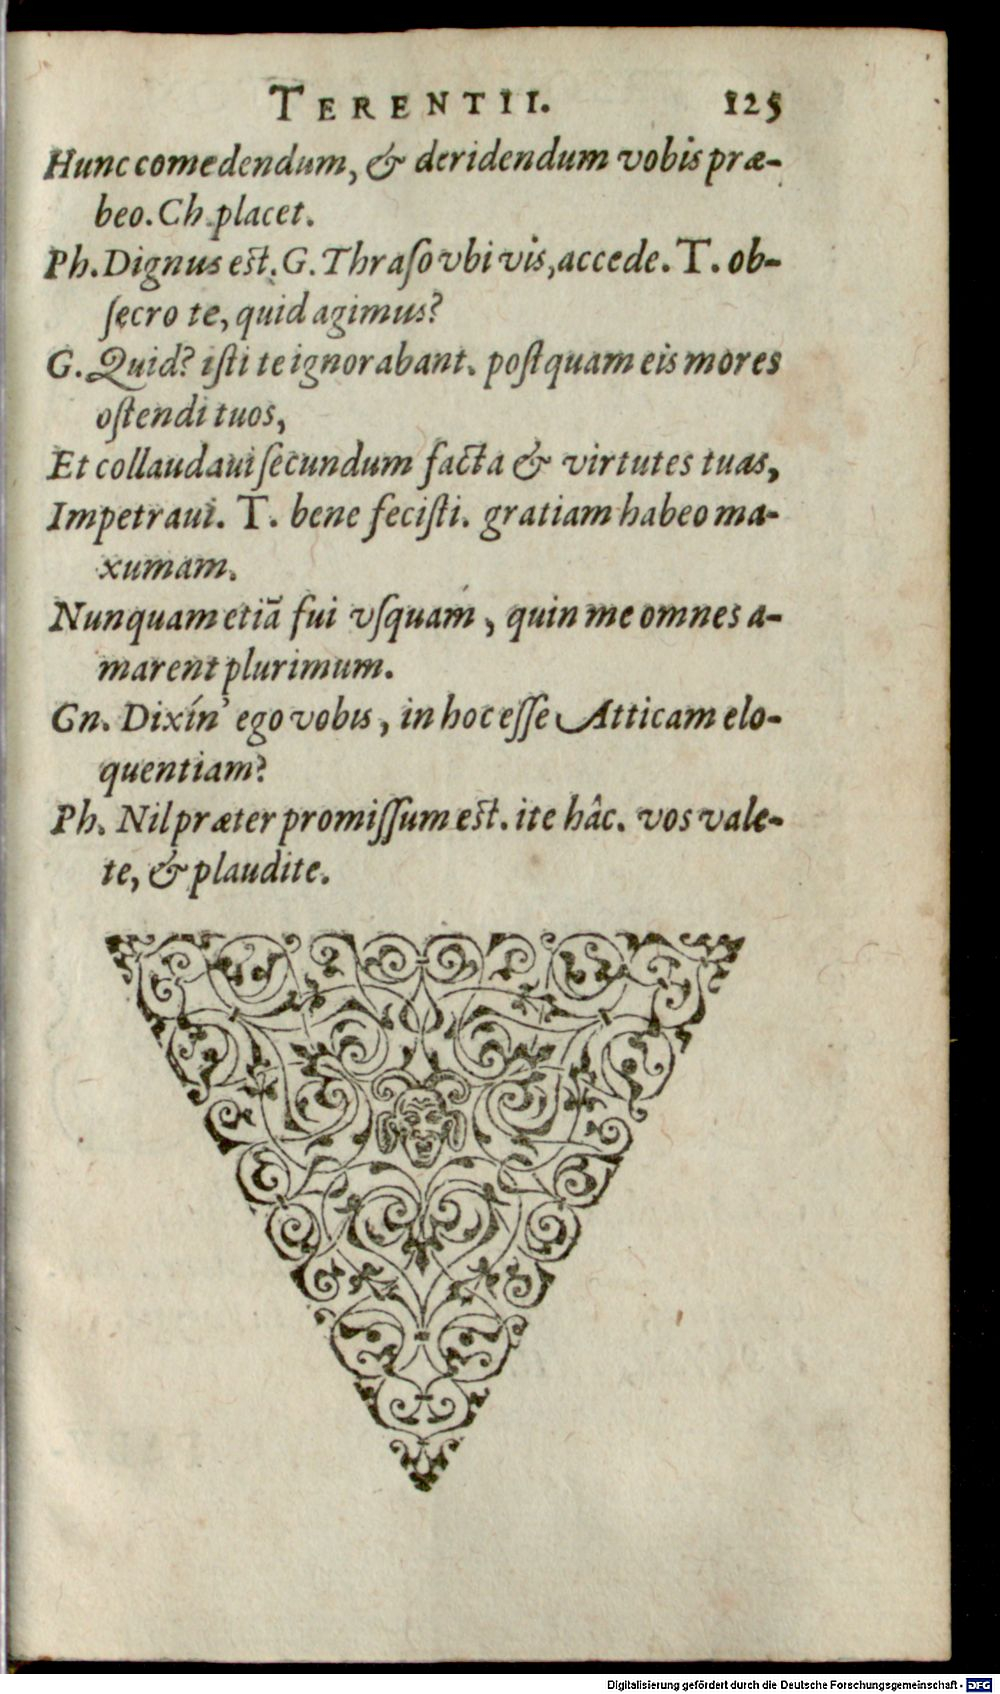 TERENTII. 125
Hunc comedendum, & deridendum vobis præ-
beo. Ch. placet.
Ph. Dignus est. G. Thraſo vbi vis, accede. T. ob-
ſecro te, quid agimus?
G. Quid? iſti te ignorabant. poſtquam eis mores
oſtendi tuos,
Et collaudaui ſecundum facta & virtutes tuas,
Impetraui. T. bene feciſti. gratiam habeo ma-
xumam.
Nunquam etiã fui vſquam, quin me omnes a-
marent plurimum.
Gn. Dixín' ego vobis, in hoc eſſe Atticam elo-
quentiam?
Ph. Nil præter promiſſum est. ite hâc. vos vale-
te, & plaudite.
Digitalisierung gefördert durch die Deutsche Forschungsgemeinschaft - DFG